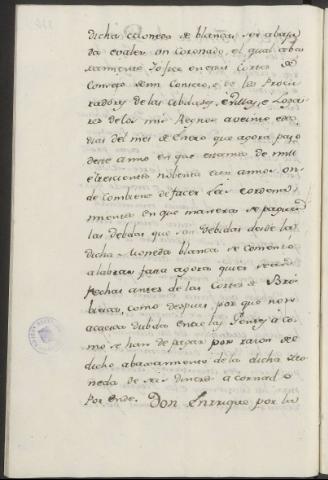 dicha moneda de blancas se abaja
da evaler un Coronado, el qual aba
xamiento Yo fice en estas Cortes de
Consejo de mi Consejo, e de los Procu
radores de las Cibdades, e villas, e Logar
es de los mis Regnos a veinte e
dias del mes de Enero que agora pasó
deste anno en que estamos de mill
e trecientos nobenta e un annos, on
de combiene de facer Ley e ordena
miento en que manera se paguen
las debdas que son debidas desde la
dicha Moneda blanca se comenzó
a labrar fasta agora quier sean
fechas antes de las Cortes de Bri
biesca, como despues, por que non
acaescan dubdas entre las Gentes co
mo se han de pagar por razon del
dicho abaxamiento de la dicha Mo
neda de seis dineros a cornado
Por ende. Don Enrrique por la